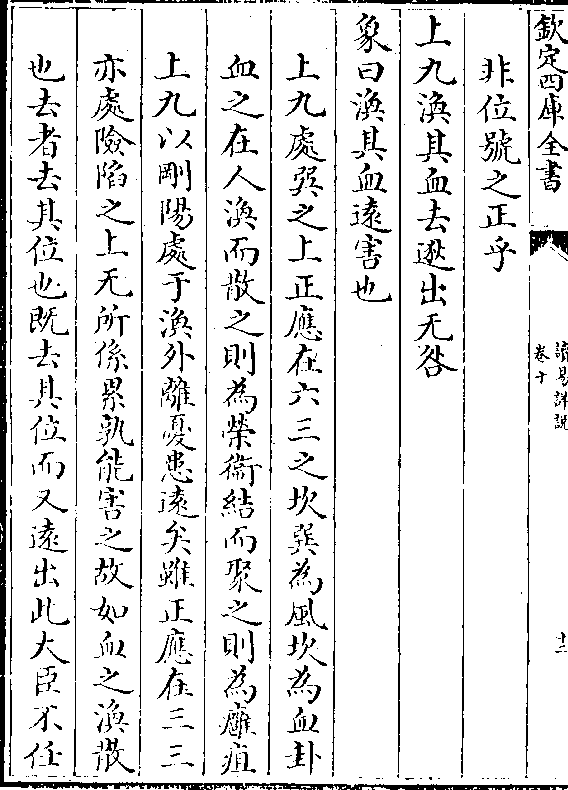 欽定四庫全書
讀易詳說
卷十
十二
非位號之正乎
上九渙其血去逖出无咎
象曰渙其血遠害也
上九處巽之上正應在六三之坎巽為風坎為血卦
血之在人渙而散之則為榮衞結而聚之則為癰疽
上九以剛陽處于渙外離憂患遠矣雖正應在三三
亦處險陷之上无所係累孰能害之故如血之渙散
也去者去其位也既去其位而又遠出此大臣不任